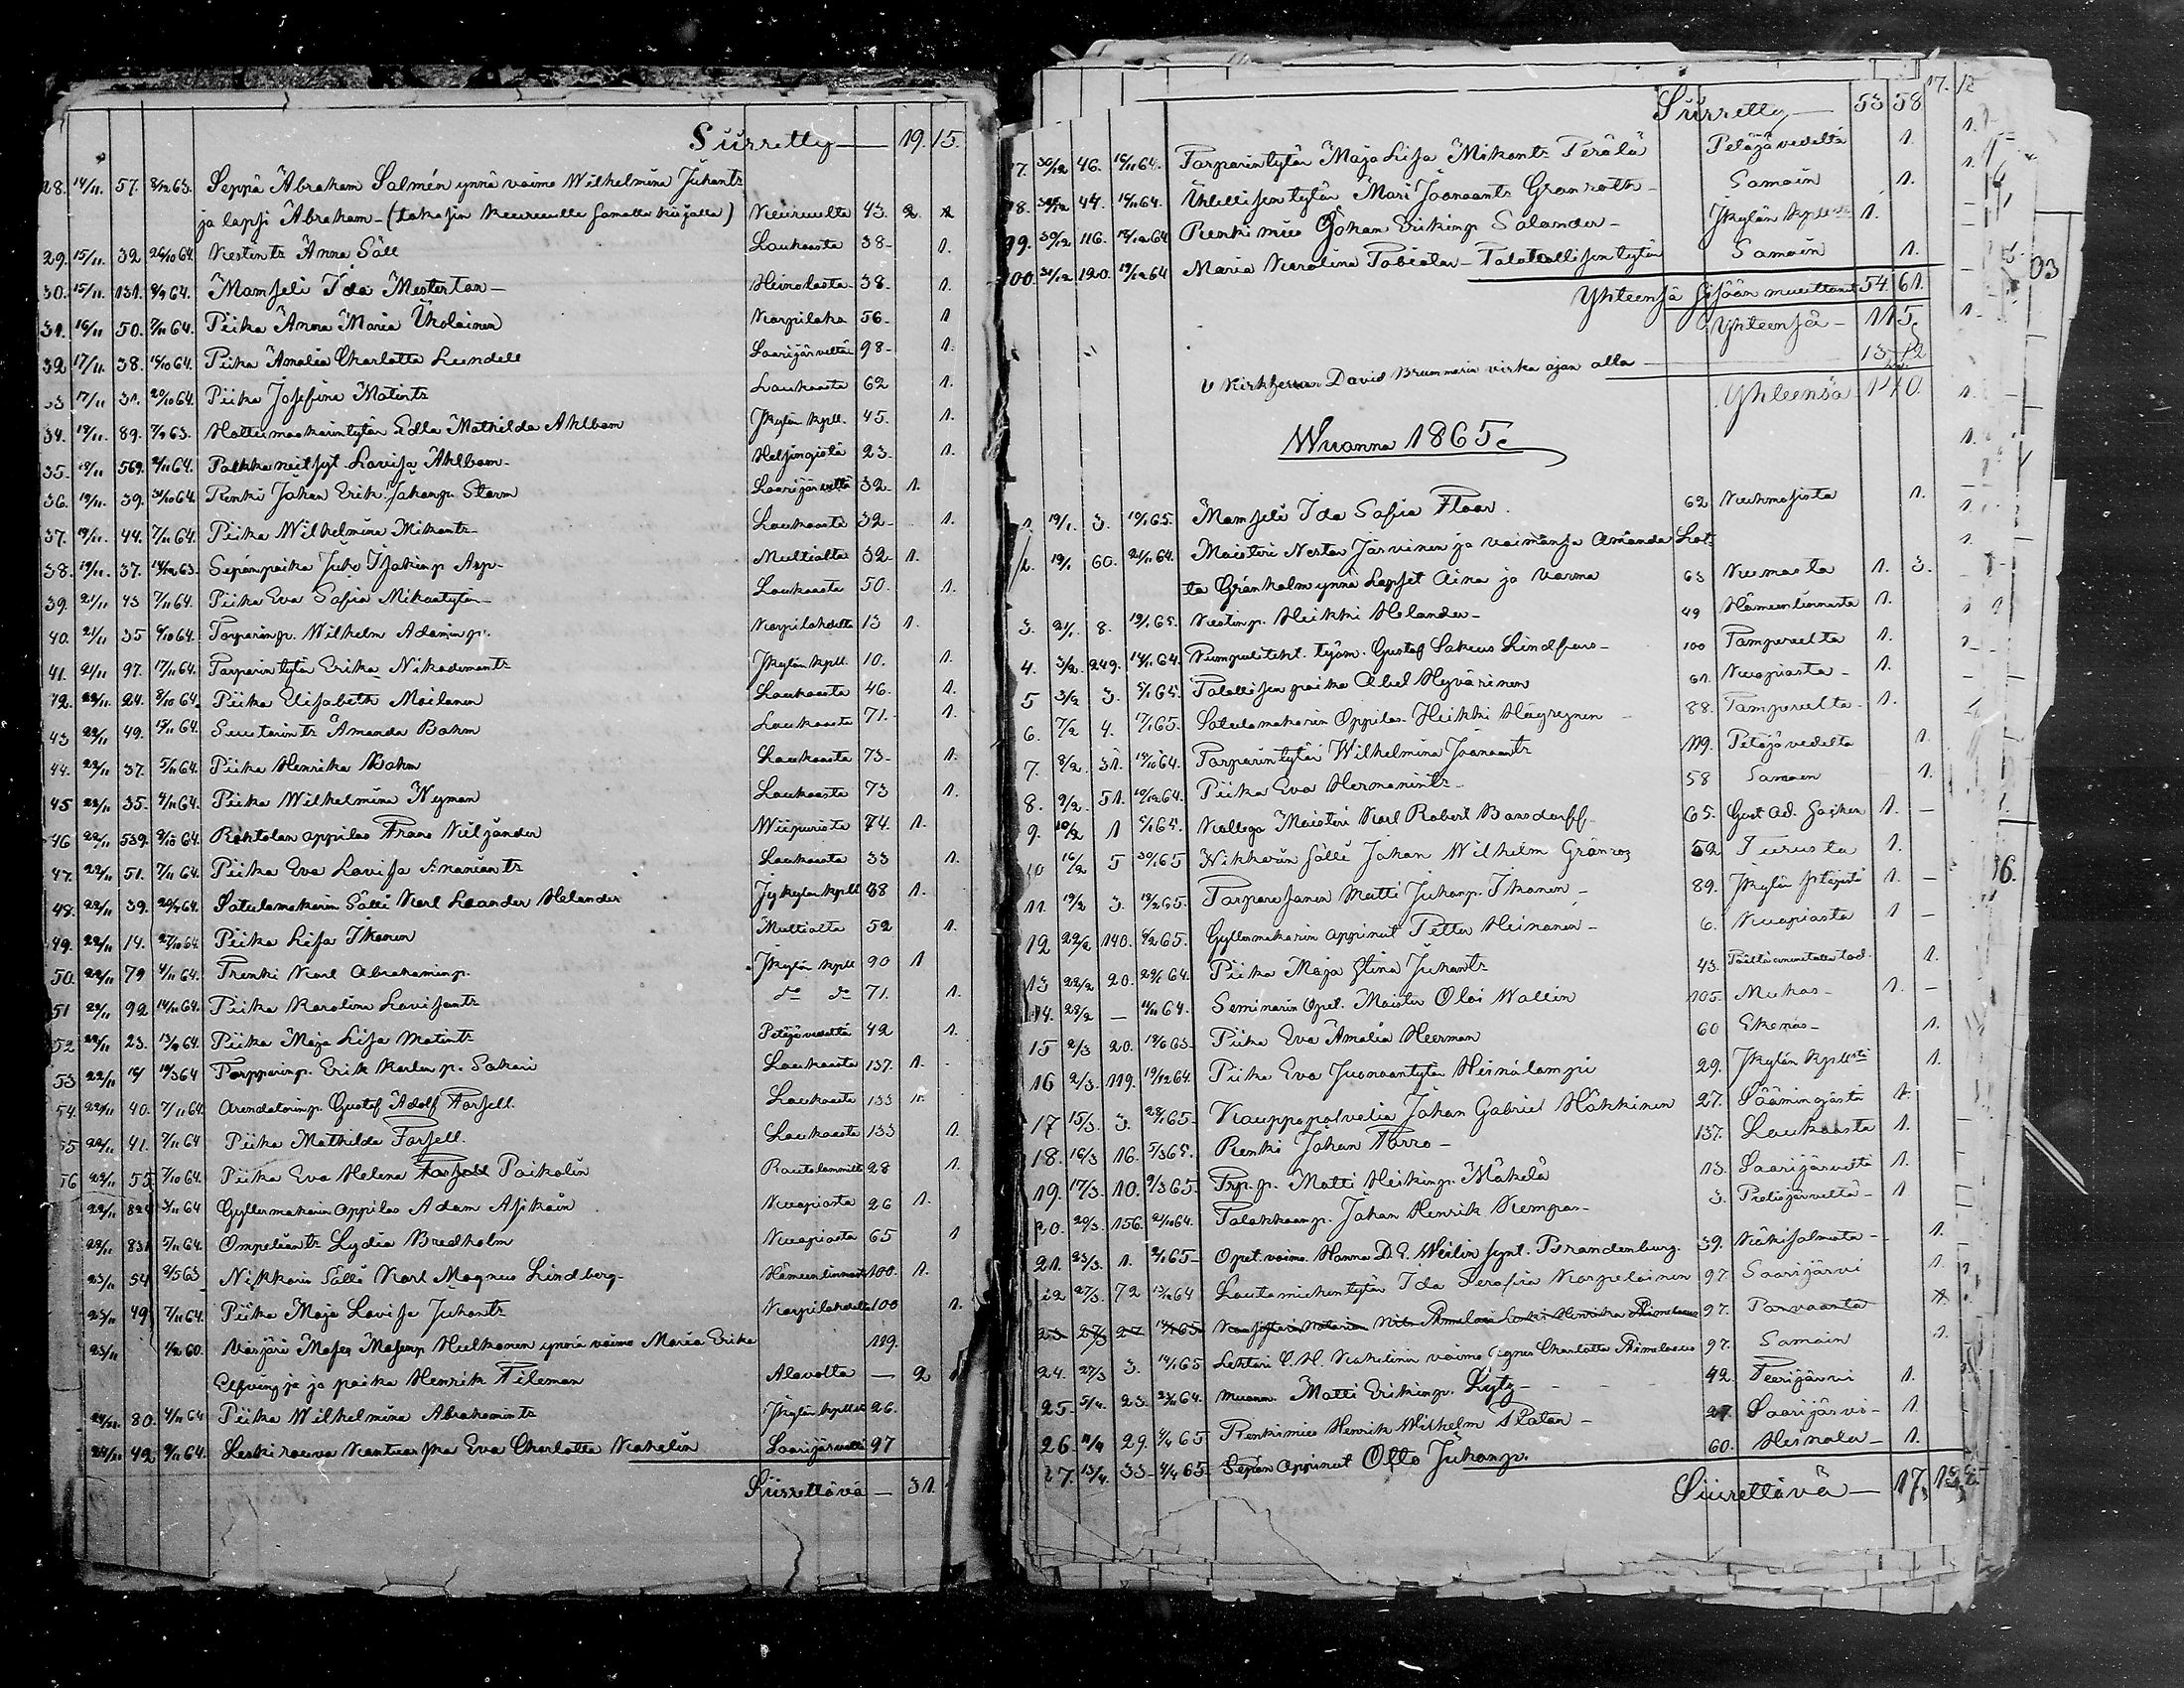 Siirretty — 19. 15.
28. 14/11. 57. 8/12 63. Seppä Abraham Salmén ynnä vaimo Wilhelmina Juhantr
ja lapsi Abraham - (takasin Keuruulle samalla kirjalla) Keuruulta 43. 2 2
29. 15/11. 32 26/10 64. Kestintr Anna Säll Laukaasta 38 - 1.
30. 15/11. 131. 8/9 64. Mamseli Ida Mesterton - Heinolasta 38 - 1.
31. 16/11 50. 7/11 64. Piika Anna Maria Ukolainen Korpilaks 56 - 1
32 17/11. 38. 15/10 64. Piika Amalia Charlotta Lundell Saarijärveltä 98 - 1.
33 17/11 31. 20/10 64. Piika Josefina Matintr Laukaasta 62 1.
34. 19/11. 89. 7/9 63. Hattumaakarintytär Edla Mathilda Ahlbom Jkylän kpll. 45. 1.
35. 19/11 569. 2/11 64. Palkkaneitsyt Lovisa Ahlbom - Helsingistä 23 - 1.
36. 19/11. 39. 31/10 64. Renki Johan Erik Johanp. Storm Saarijärveltä 32 - 1.
37. 19/11. 44. 7/11 64. Piika Wilhelmina Mikontr - Laukaasta 32 - 1.
38. 19/11. 37. 14/12 63. Sepänpoika Juho Isakinp Asp - Multialta 32 - 1.
39. 21/11 43 7/11 64. Piika Eva Sofia Mikontytär - Laukaasta 50. 1.
40. 21/11 35 6/10 64. Torparinp. Wilhelm Adaminp. Korpilahdelta 13 1.
41. 21/11 97. 17/11 64. Torparin tytär Erika Nikodemantr Jkylän kpll. 10. 1.
42. 22/11. 24. 8/10 64. Piika Elisabeth Moilanen Laukaasta 46. 1.
43 22/11 49. 15/11 64. Suutarintr Amanda Bohm Laukaasta 71. - 1.
44. 22/11 37. 5/11 64. Piika Henrika Bohm Laukaasta 73 - 1.
45 22/11 35. 4/11 64. Piika Wilhelmina Nyman Laukaasta 73 1.
46 22/11 539. 8/10 64. Rohtolan appilas Frans Kiljander Wiipurista 74. 1.
47. 22/11 51. 7/11 64. Piika Eva Lovisa Ananiantr Laukaasta 33 1.
48. 22/11 39. 20/9 64. Satulamakarin Sälli Karl Leander Helander Jykylän kpll 98 1.
49. 22/11 14. 27/10 64. Piika Lisa Ikonen Multialta 52 1.
50. 22/11 79 4/11 64. Trenki Karl Abrahaminp. Jkylän kpll 90 1
51 22/11 92 14/11 64. Piika Karolina Lovisantr do do 71. 1.
52 22/11 23. 13/9 64. Piika Maja Lisa Matintr Petäjävedeltä 42 1.
53 22/11 19/3 64 Torpparinp. Erik Karlen p. Sakari Laukaasta 137. 1.
54. 22/11 40. 7/11 64. Arendatorinp. Gustaf Adolf Forsell. Laukaasta 133 1.
55 22/11 41. 7/11 64 Piika Mathilda Forsell. Laukaasta 133 1.
56 22/11 55 7/10 64. Piika Eva Helena Forsell Paikolin Rautalammilta 28 1.
22/11 3/11 64 Gyllermakarin appilas Adam Asikain Kuopiosta 26 1.
22/11 831 5/11 64. Ompeliantr Lydia Bredholm Kuopiosta 65 1
23/11 54 2/5 63 Nikkarin Sälli Karl Magnus Lindberg - Hämeenlinnasta 100. 1.
23/11 49 7/11 64. Piika Maja Lovisa Juhantr Korpilahdelta 100 1.
23/11 1/2 60. Värjäri Moses Mosenp Hulkonen ynnä vaimo Maria Erika 119.
Elfving ja poika Henrik Fileman Alavolta — 2 1
24/11. 80. 4/11 64 Piika Wilhelmina Abrahamintr Jkylän kpllst 26.
24/11 42 9/11 64. Leskirouva Eva Charlotta Kahelin Saarijärveltä 97
Siirrettävä — 31.
17. 12
Siirretty — 53 58
97. 30/12 46. 16/11 64. Torparintytär Maja Lisa Mikontr Perälä Petäjävedeltä 1.
98. 30/12 44. 16/11 64. Ithellisen tytär Mari Joonaantr Granroth - Samoin 1.
99. 30/12 116. 18/12 64 Renki mies Johan Erikinp Salander - Jkylän kpllst 1.
100. 31/12 120. 19/12 64 Maria Karolina Tobiatar - Talokollisen tytär Samoin 1.
Yhteensä sisään muuttant 54. 61.
Yhteensä - 115.
v Kirkherran David Brummerin virka ajan alla — 13. 12
Yhteensä 140.
Wuonna 1865.
1. 19/1. 3. 19/1 65. Mamseli Ida Sofia Floor. 62 Kuhmosista 1.
2. 19/1 60. 21/11 64. Maisteri Nestor Järvinen ja vaimonsa Amanda Lot=
ta Granholm ynnä Lapset Aina ja Varma 63 Kiimasta 1. 3.
3. 21/1. 8. 19/1 65. Kestinp. Heikki Helander - 49 Hämeenlinnasta 1.
4. 3/2. 249. 14/11 64. Pumpuliteht. työm. Gustaf Sakeus Lindfors - 100 Tampereelta 1.
5 3/2 3. 5/1 65. Talollisen poika Abel Hyvärinen 61. Kuopiosta - 1.
6. 7/2 4. 17/1 65. Satulamakarin Oppilas Heikki Häyrynen - 88. Tampereelta - 1.
7. 8/2. 31. 19/10 64. Torparintytär Wilhelmina Joonaantr 119. Petäjävedelta 1.
8. 9/2. 51. 10/12 64. Piika Eva Hermanintr - 58 Samoin 1.
9. 10/2 1 5/1 65. Kollega Maisteri Karl Robert Bonsdorff - 65. Gust Ad. 1. —
10 16/2 5 30/1 65 Nikkarin sälli Johan Wilhelm Granros 52 Turusta 1.
11. 19/2 3. 19/2 65. Torpare sonen Matti Juhonp. Ikonen - 89. Jkylän 1. —
12 22/2 140. 4/2 65. Gyllermakarin appinut Petter Heinonen - 6. Kuopiosta 1 —
13 22/2 20. 29/11 64. Piika Maja Stina Juhantr 43. 1.
14. 28/2 — 64. Seminarin Opet. Maister Oloi Wallin 105. Muhos - 1. —
15 2/3 20. 19/6 63 - Piika Eva Amalia Heerman 60 Ekenäs - 1.
16 2/3. 119. 19/12 64. Piika Eva Juonaantytär Heinälampi 29. Jkylän kpllsta 1.
17 15/3. 3. 28/1 65. Kauppapalvelia Johan Gabriel Häkkinen 27. Säämingistä 1.
18. 16/3 16. 5/3 65. Renki Johan Porro - 137. Laukaasta 1. —
19. 17/3. 10. 9/3 65. Trp. p. Matti Heikinp. Mäkelä 13. Saarijärvelta 1. —
20. 20/3. 156. 21/10 64. Talokkaanp. Johan Henrik Kempas - 3. Pielisjärveltä - 1
21. 23/3. 1. 2/1 65 - Opet. vaimo. Hanna D. E. Weilin synt. Brandenburg. 39. Käkisalmesta - 1.
22 27/3. 72 13/12 64 Lautamiehentytär Ida Serafia Karpelainen 97 Saarijärvi 1.
23 27/3 27 65 97. Porvoosta 1.
24. 27/3 3. 14/1 65 Lehtori C. H. Kahelinin vaimo Agnes Charlotta Rimelaeus 97. Samoin 1.
25. 5/4. 23. 64. Muonm Matti Erikinp. Lytz - 92. Perijärvi 1.
26. 11/4 29. 65 Renkimies Henrik Wilhelm Platan - 27. Saarijärvi - 1.
27. 13/4. 33 - 4/4 65. Sepän appinut Otto Juhonp. 60. Heinola - 1.
Siirrettävä — 17.